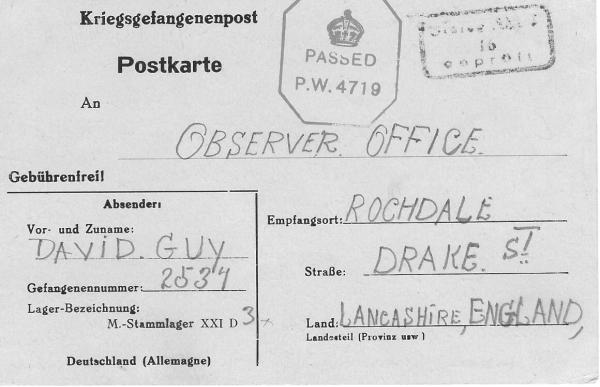 Kriegsgefangenenpost
Postkarte
PASSED
P.W. 4719
16
geprüft
An
OBSERVER. OFFICE.
Gebührenfrei!
Absender:
Vor- und Zuname:
DAVID. GUY
Gefangenennummer: 2534
Lager-Bezeichnung:
M.-Stammlager XXI D 3
Deutschland (Allemagne)
Empfangsort: ROCHDALE
Straße: DRAKE. ST
Land: LANCASHIRE, ENGLAND,
Landesteil (Provinz usw)